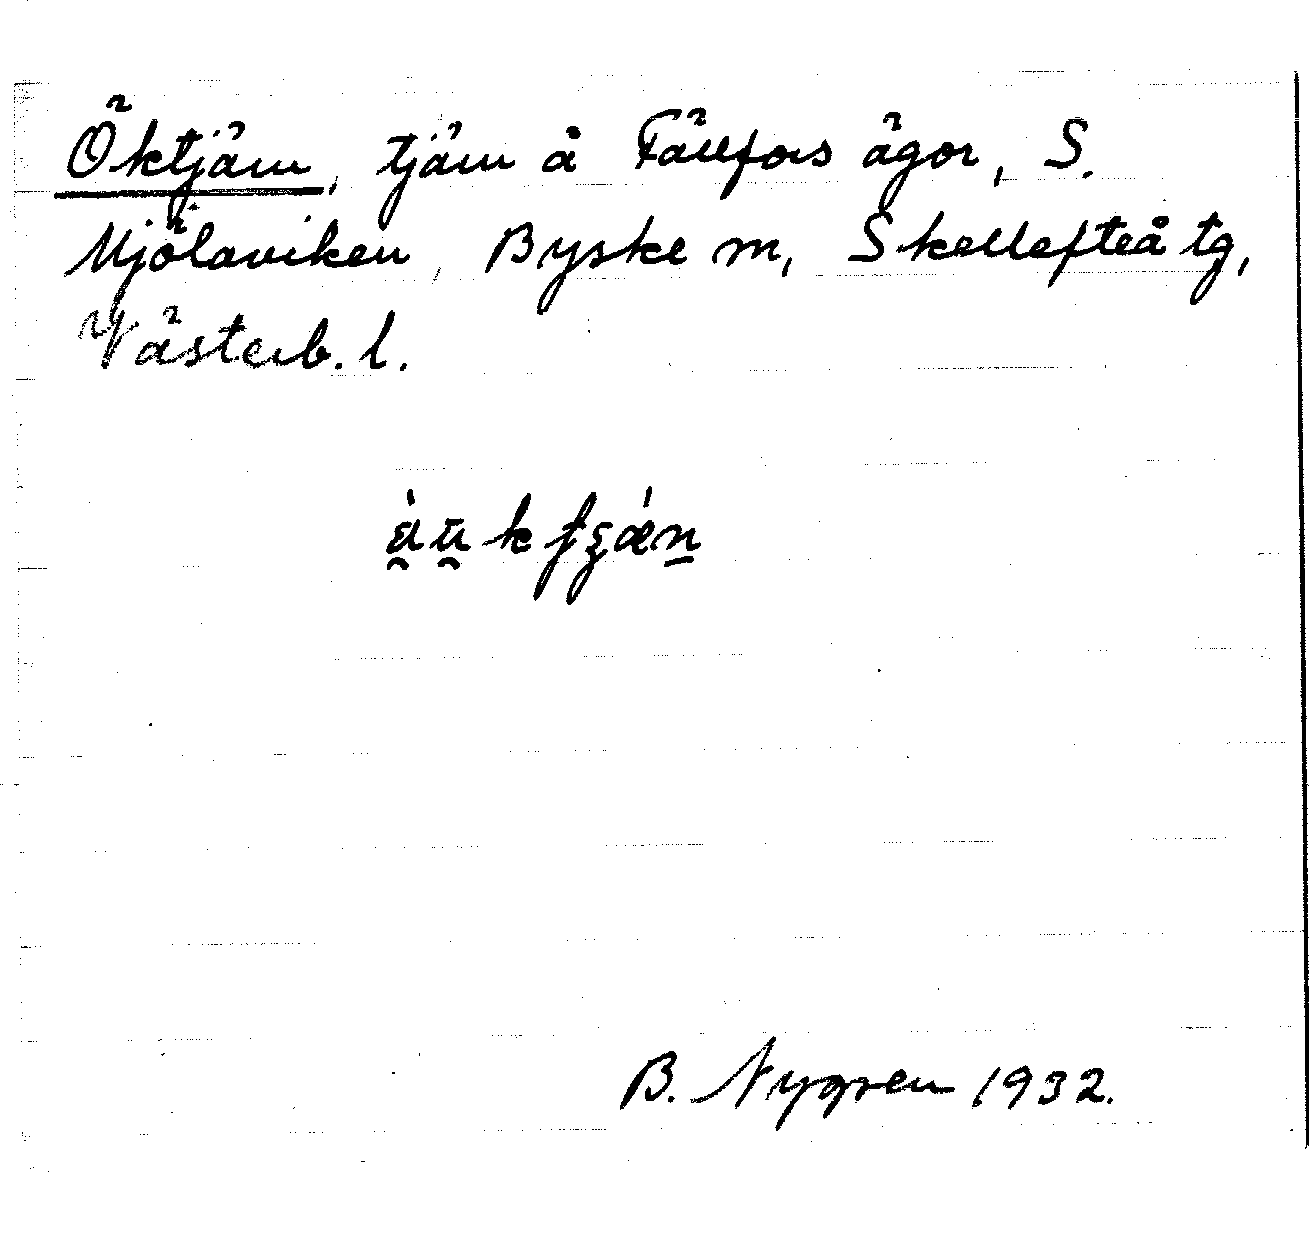 Öktjärn, tjärn å Fällfors ägor, S.
Mjölaviken, Byske sn, Skellefteå tg,
Västerb. l.
B. Nygren 1932.